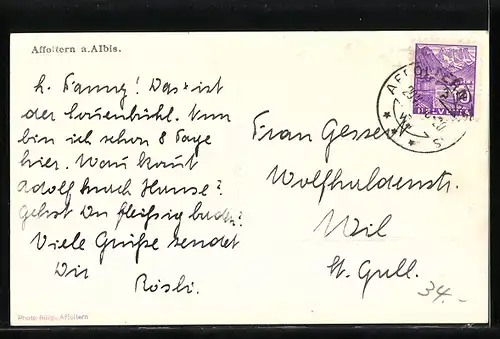 Affoltern a.Albis.
L. Fanny! Das ist
der Lowenbühl. Nun
bin ich schon 8 Tage
hier. Wann kommt
Adolf nach Hause?
Gehst Du fleissig baden?
Viele Grüsse sendet
Dir
Rösli.
AFFOLTERN
HELVETIA
Frau Gesser
Wolfhaldenstr.
Wil
St. Gall.
34.-
Photo Affoltern